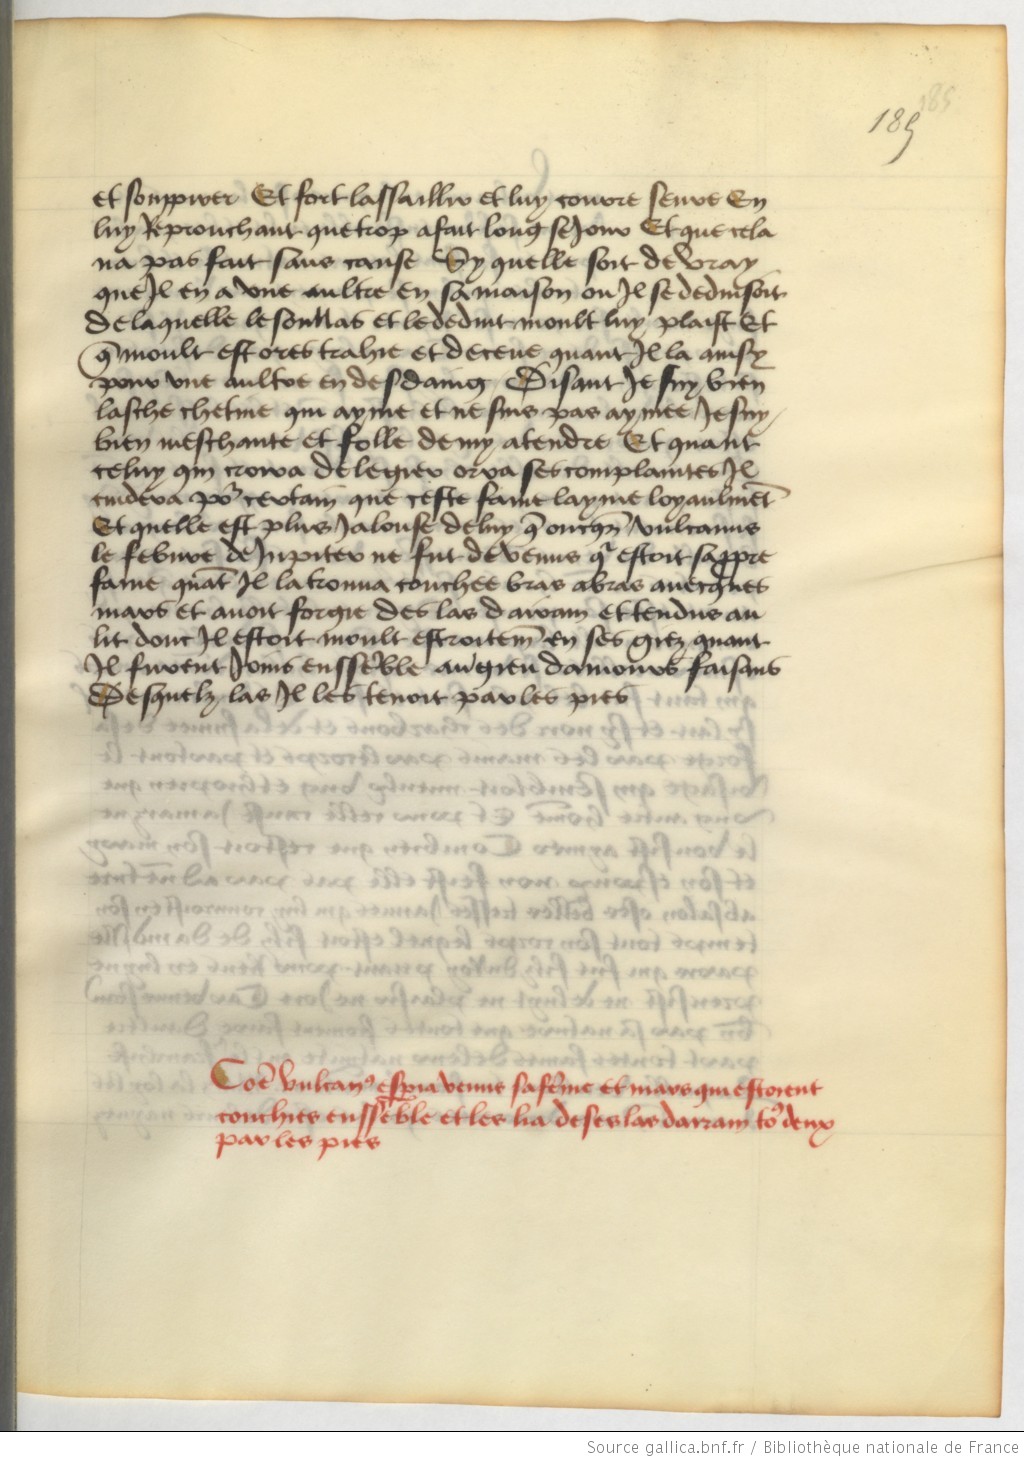 185
185
et souppirer Et fort lassaillir et luy courre seure En
luy Reprouchant que trop a fait long seJour Et que cela
na pas fait sans cause Sy quelle soit de vray
que Il en a vne aultre en sa maison ou Il se deduisoit
de laquelle le soullas et le deduit moult luy plaist Et
q̄ moult est ores trahie et deceue quant Il la ainsy
pour vne aultre en desdaing Disant Je suy bien
lasche chetiue qui ayme et ne suis pas aymee Je suy
bien meschante et folle de my atendre Et quant
celuy qui croira de legier orra ses complaintes Il
cuidera po᷑ certain que ceste fame layme loyaulmēt
Et quelle est plus Jalouse de luy q̄ oncq̄s vulcanus
le febure de Jupiter ne fut de venus q̄ estoit sa ppre
fame quāt Il la trouua couchee bras a bras auecques
mars et auoit forgie des las dairam et tendus au
lit donc Il estoit moult estroitem̄ en ses giez quant
Il furent Joins enssēble au gieu damours faisans
Desquelz las Il les tenoit par les pies
Cōe vulcanꝰ espia venus sa fēme et mars qui estoient
couchies enssēble et les lia de ses las darram to᷒ deux
par les pies
Source gallica.bnf.fr / Bibliothèque nationale de France